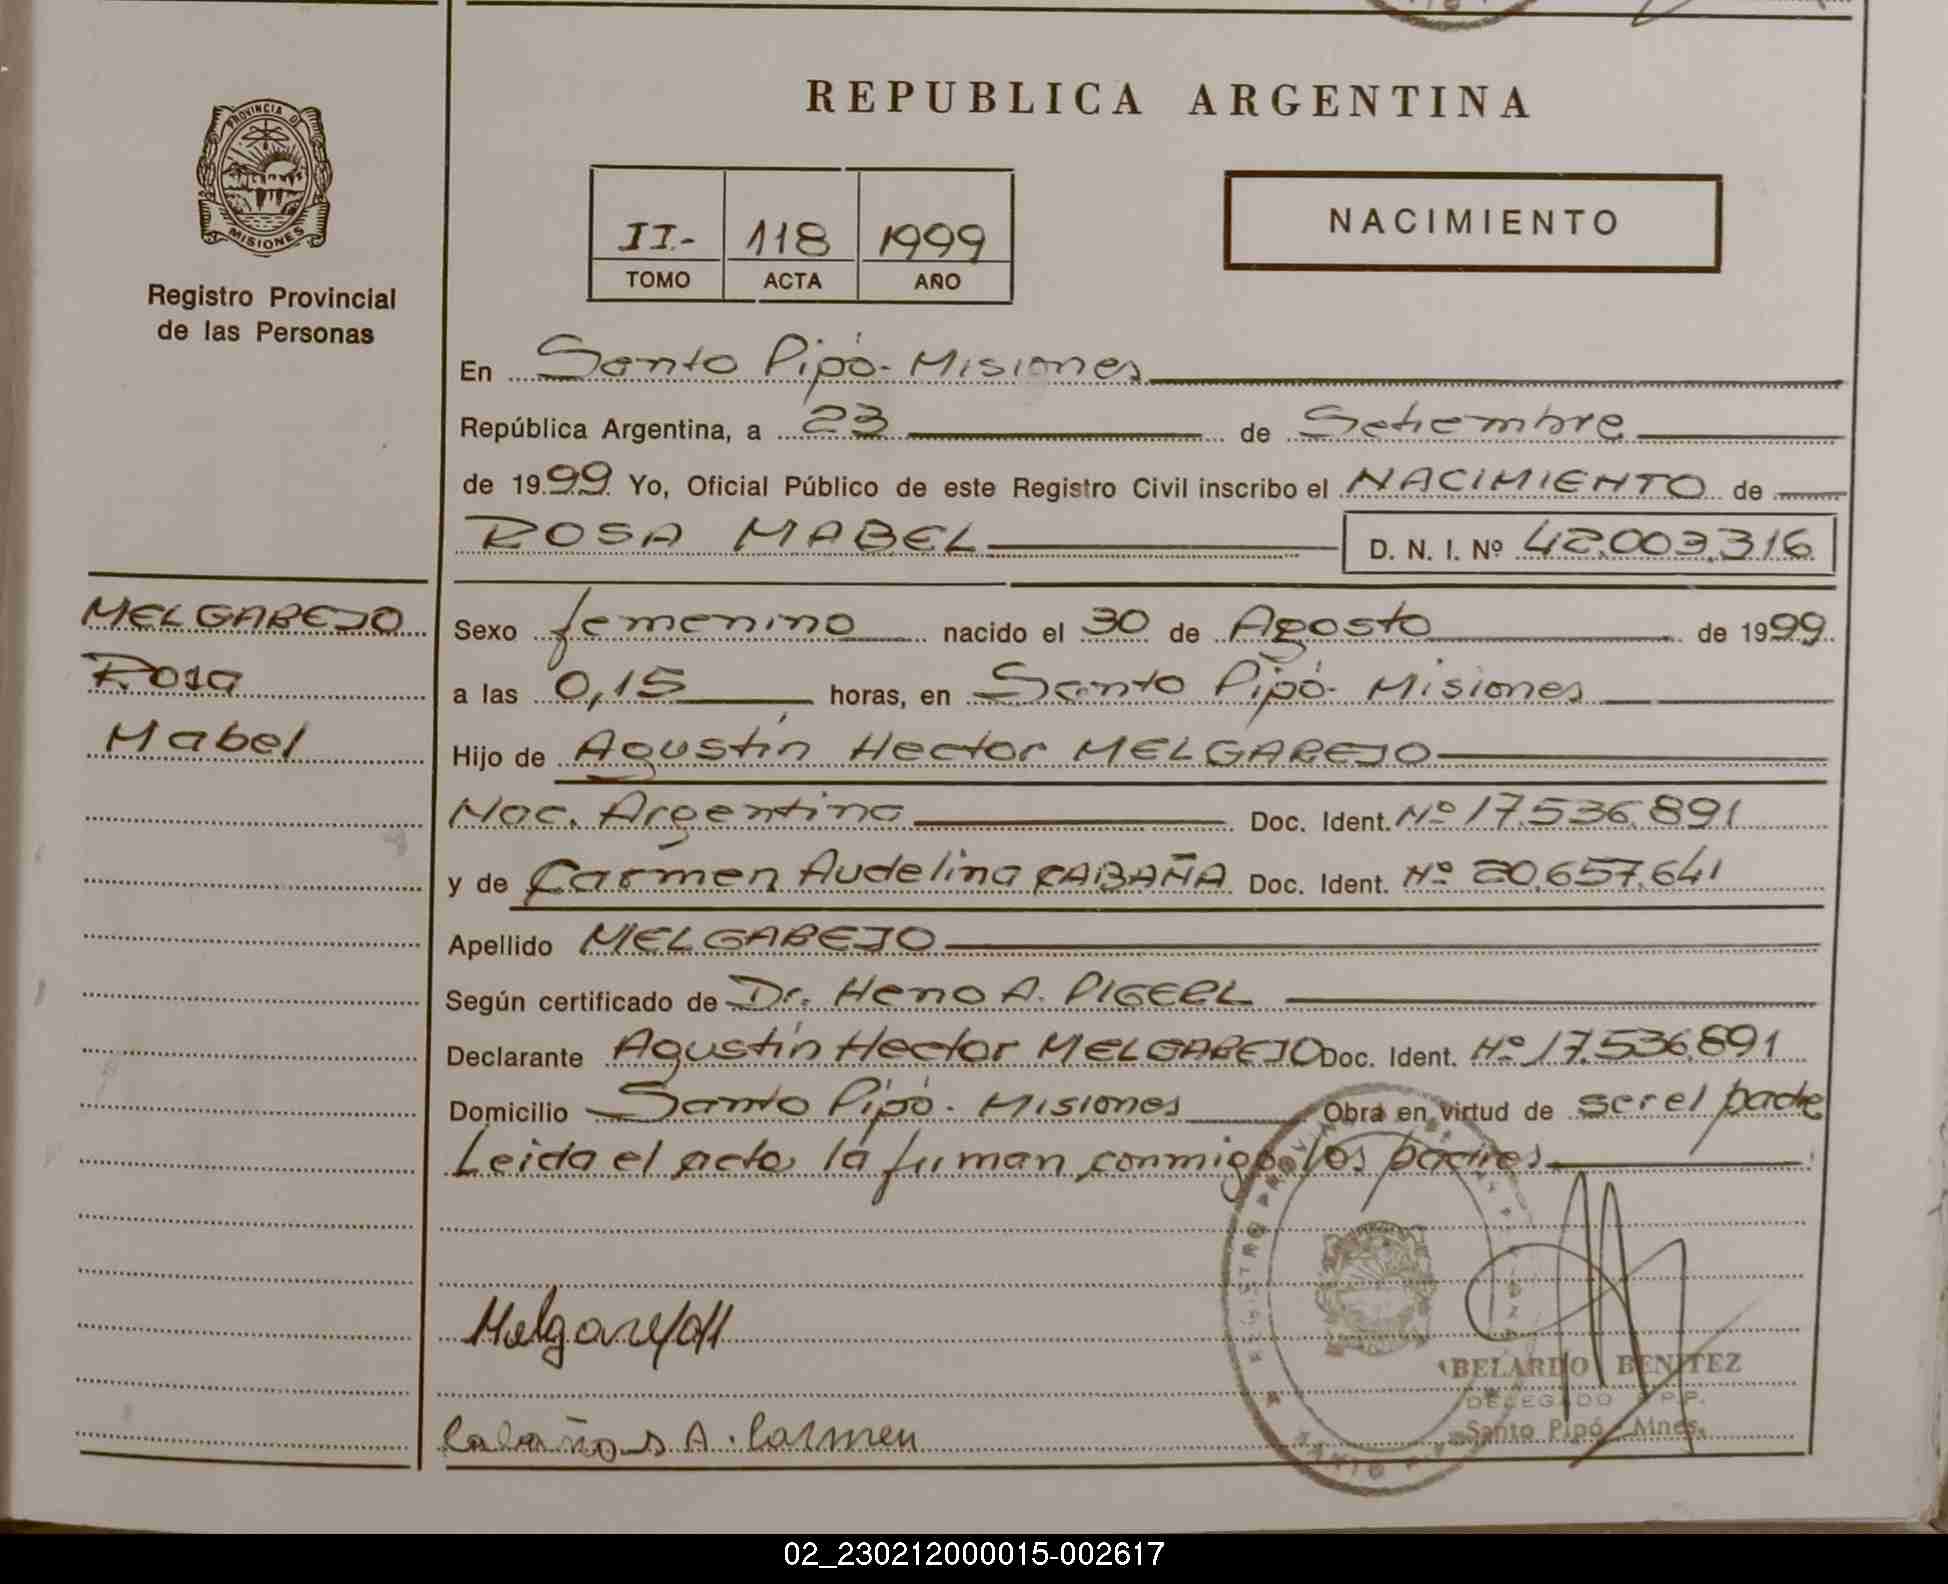 REPUBLICA ARGENTINA
PROVINCIA DE
MISIONES
Registro Provincial
de las Personas
II.- 118 1999
TOMO ACTA AÑO
NACIMIENTO
En Santo Pipó - Misiones
República Argentina, a 23 de Setiembre
de 1999 Yo, Oficial Público de este Registro Civil inscribo el NACIMIENTO de
ROSA MABEL D. N. I. Nº 42.003.316
MELGAREJO
Rosa
Mabel
Sexo femenino nacido el 30 de Agosto de 1999
a las 0,15 horas, en Santo Pipó - Misiones
Hijo de Agustín Hector MELGAREJO
Nac. Argentina Doc. Ident. Nº 17.536.891
y de Carmen Audelina CABAÑA Doc. Ident. Nº 20.657.641
Apellido MELGAREJO
Según certificado de Dr. Heno A. PIGERL
Declarante Agustín Hector MELGAREJO Doc. Ident. Nº 17.536.891
Domicilio Santo Pipó - Misiones Obra en virtud de ser el padre
Leida el acta, la firman conmigo, los padres
Melgarejo H
BELARDO BENITEZ
DELEGADO R.P.P.
Santo Pipó - Mnes.
Cabañas A. Carmen
02_230212000015-002617